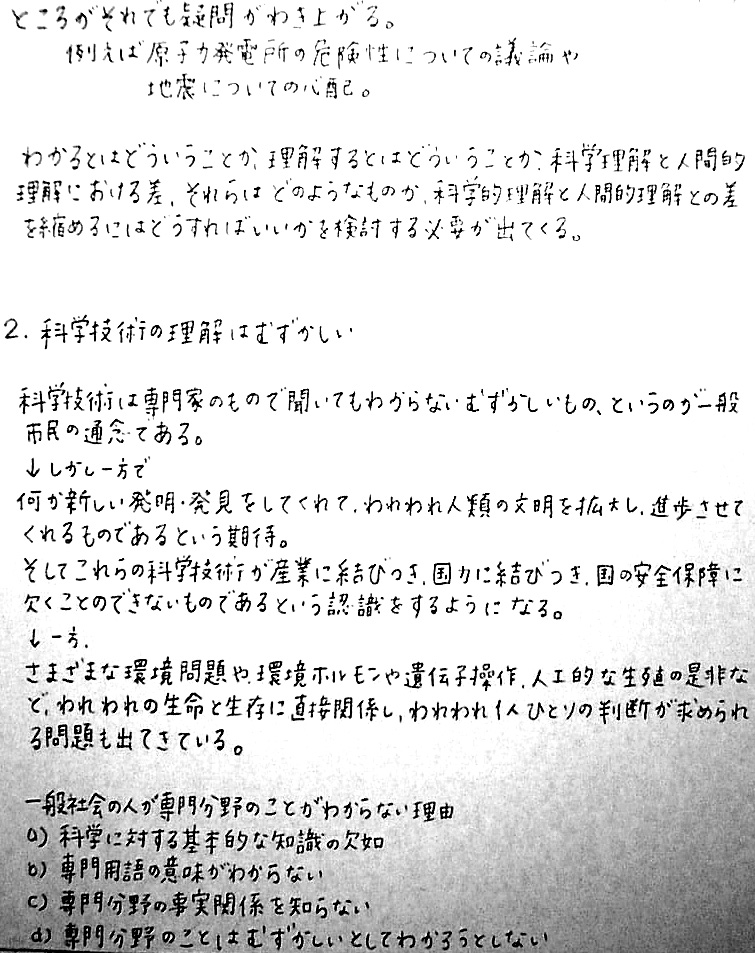 ところがそれでも疑問がわき上がる。
例えば原子力発電所の危険性についての議論や
地震についての心配。
わかるとはどういうことか、理解するとはどういうことか、科学理解と人間的
理解における差、それらはどのようなものか、科学的理解と人間的理解との差
を縮めるにはどうすればいいかを検討する必要が出てくる。
2. 科学技術の理解はむずかしい
科学技術は専門家のもので聞いてもわからないむずかしいもの、というのが一般
市民の通念である。
↓しかし一方で
何か新しい発明・発見をしてくれて、われわれ人類の文明を拡大し、進歩させて
くれるものであるという期待。
そしてこれらの科学技術が産業に結びつき、国力に結びつき、国の安全保障に
欠くことのできないものであるという認識をするようになる。
↓一方、
さまざまな環境問題や、環境ホルモンや遺伝子操作、人工的な生殖の是非な
ど、われわれの生命と生存に直接関係し、われわれ1人ひとりの判断が求められ
る問題も出てきている。
一般社会の人が専門分野のことがわからない理由
a) 科学に対する基本的な知識の欠如
b) 専門用語の意味がわからない
c) 専門分野の事実関係を知らない
d) 専門分野のことはむずかしいとしてわかろうとしない